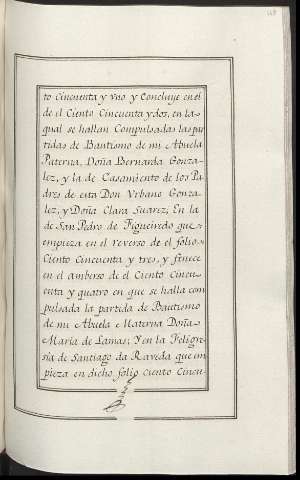 to Cincuenta y vno y Concluye en el
de el Ciento Cincuenta y dos, en la
qual se hallan Compulsadas las par
tidas de Bautismo de mi Abuela
Paterna, Doña Bernarda Gonza-
lez, y la de Casamiento de los Pa
dres de esta Don Vrbano Gonza-
lez, y Doña Clara Suarez, En la
de San Pedro de Figueiredo que
empieza en el reverso de el folio
Ciento Cincuenta y tres, y finece
en el amberso de el Ciento Cincu-
enta y quatro en que se halla com
pulsada la partida de Bautismo
de mi Abuela Materna Doña
Maria de Lamas; Y en la Feligre-
sia de Santiago da Raveda que em
pieza en dicho folio Ciento Cincu-